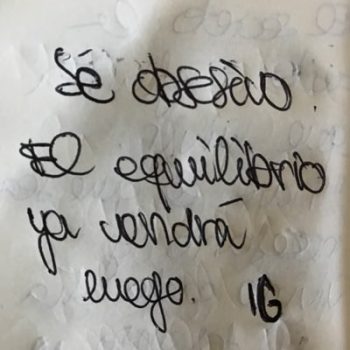 Sé obsesivo.
El equilibrio
ya vendrá
luego. IG